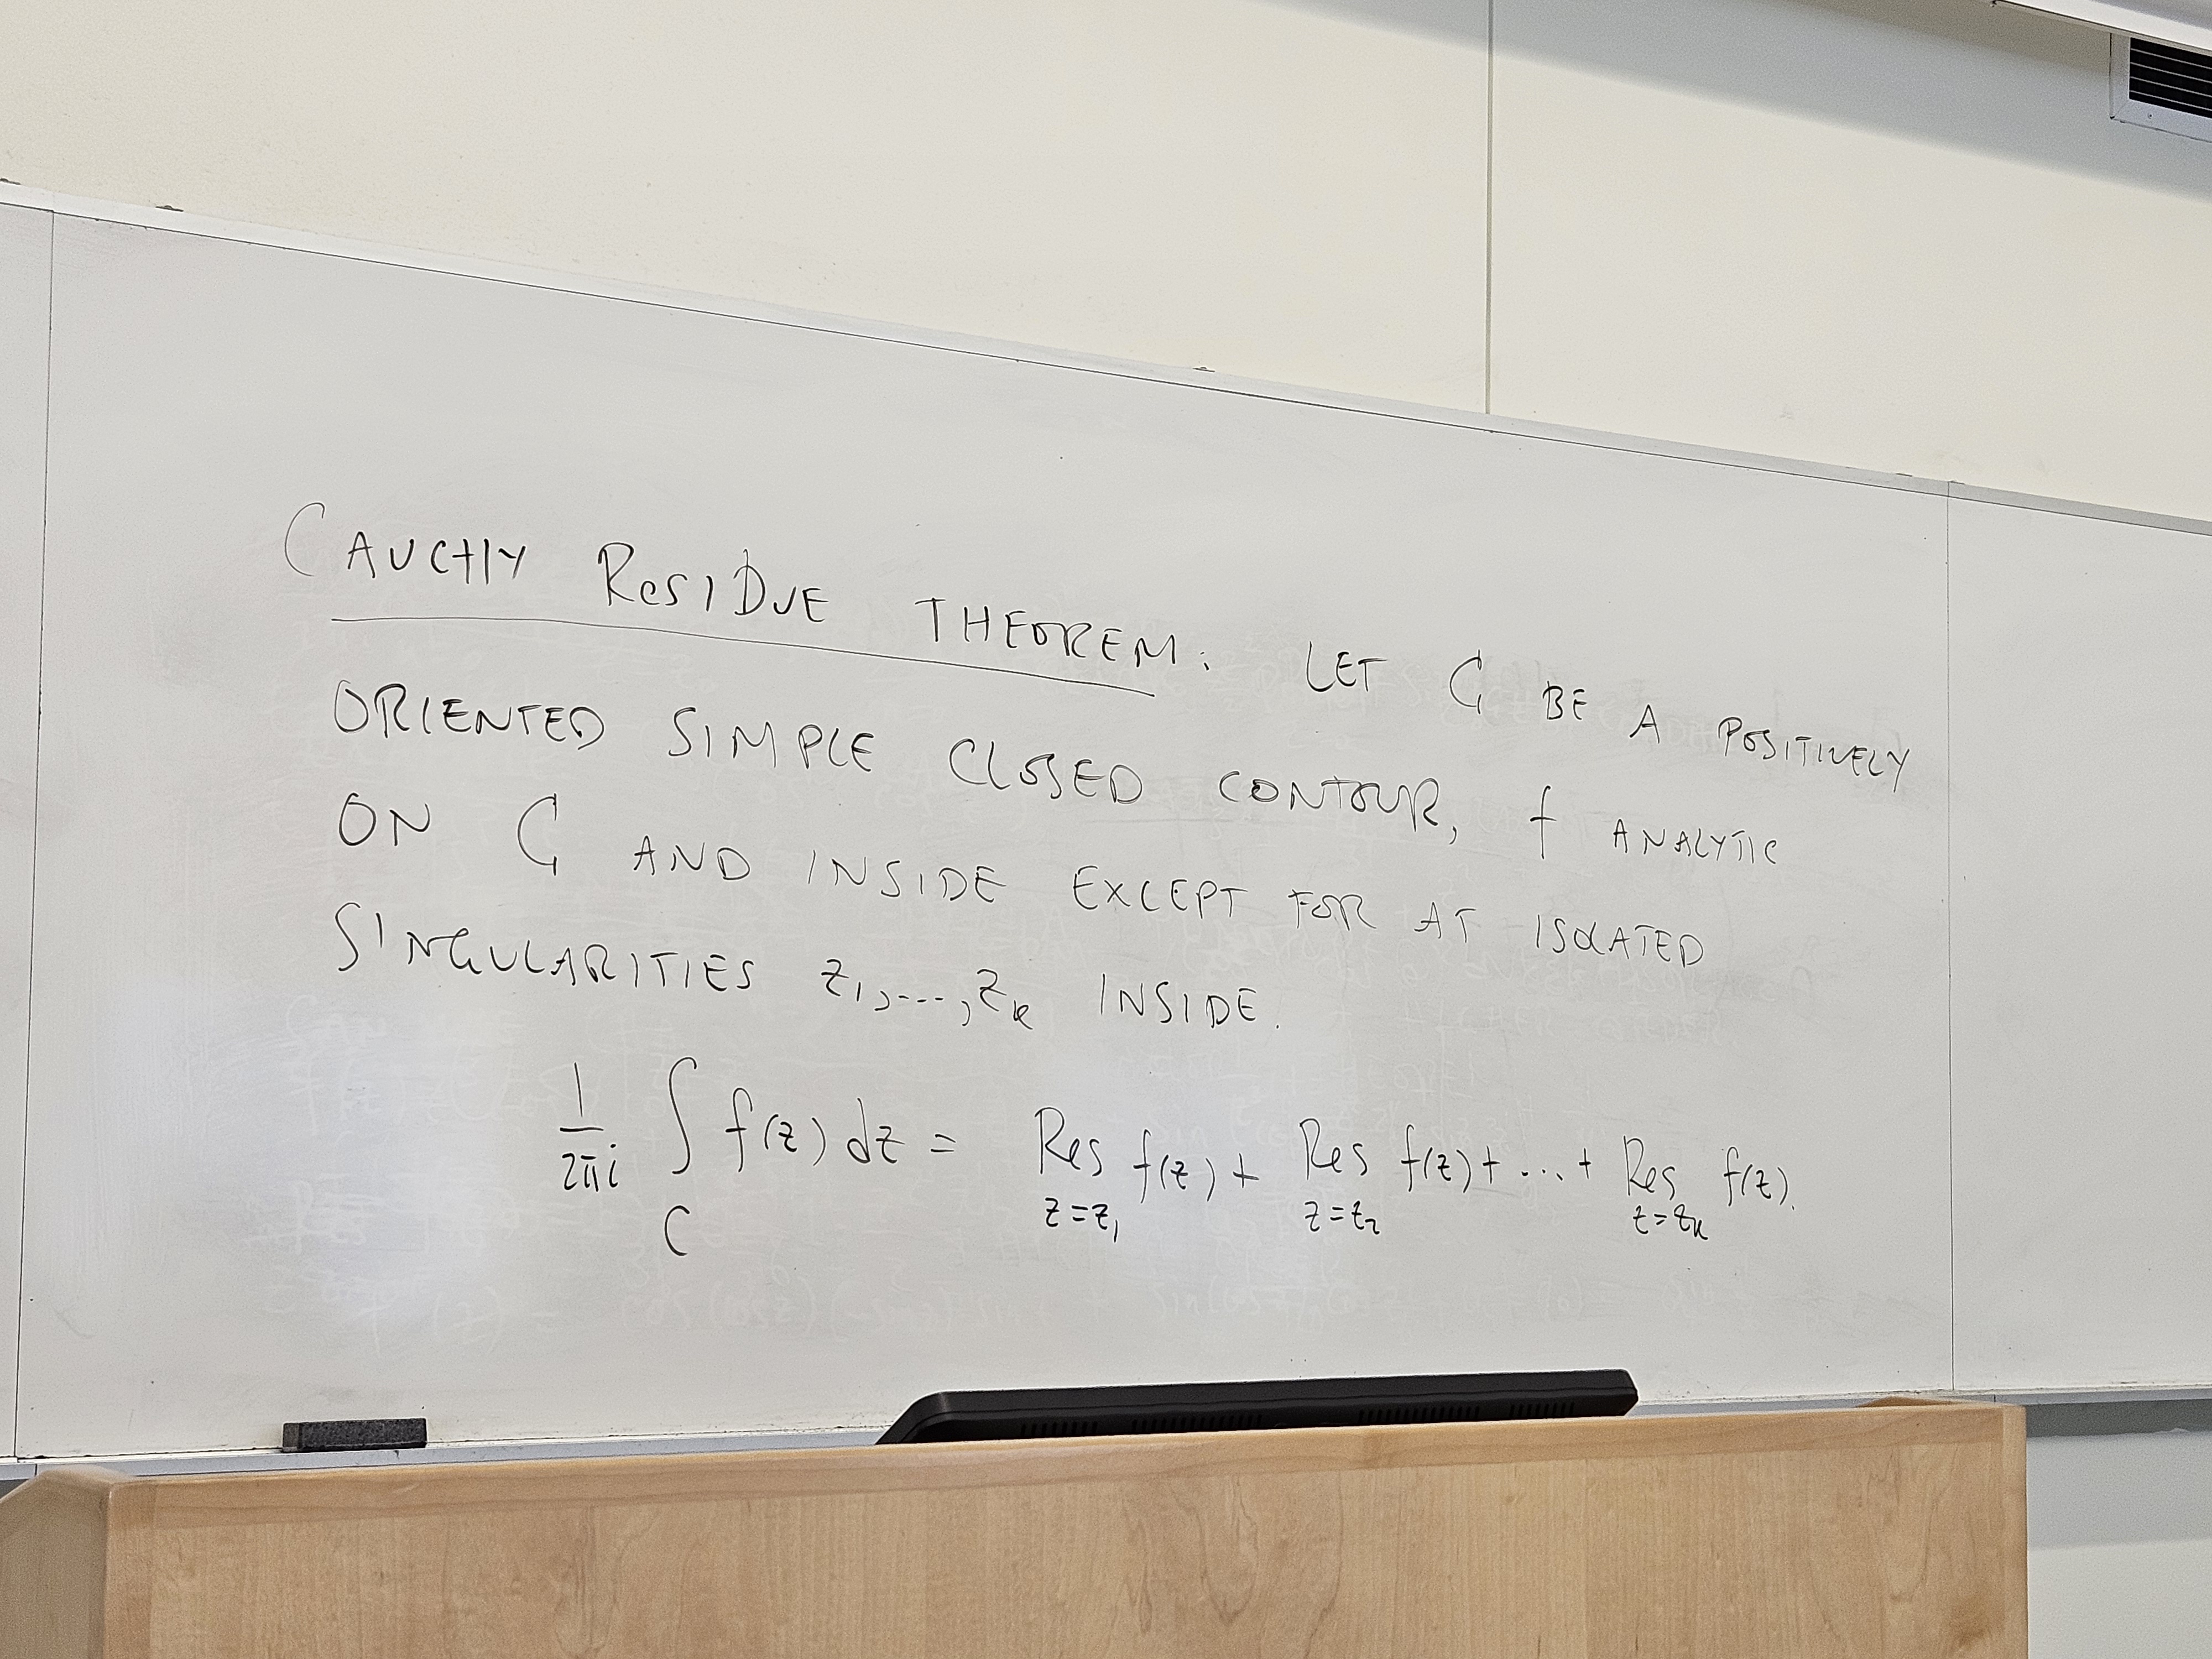 CAUCHY RESIDUE THEOREM: LET C BE A POSITIVELY
ORIENTED SIMPLE CLOSED CONTOUR, f ANALYTIC
ON C AND INSIDE EXCEPT FOR AT ISOLATED
SINGULARITIES z₁,...,zₖ INSIDE.
1/(2πi) ∫_C f(z) dz = Res_{z=z₁} f(z) + Res_{z=z₂} f(z) + ... + Res_{z=zₖ} f(z).